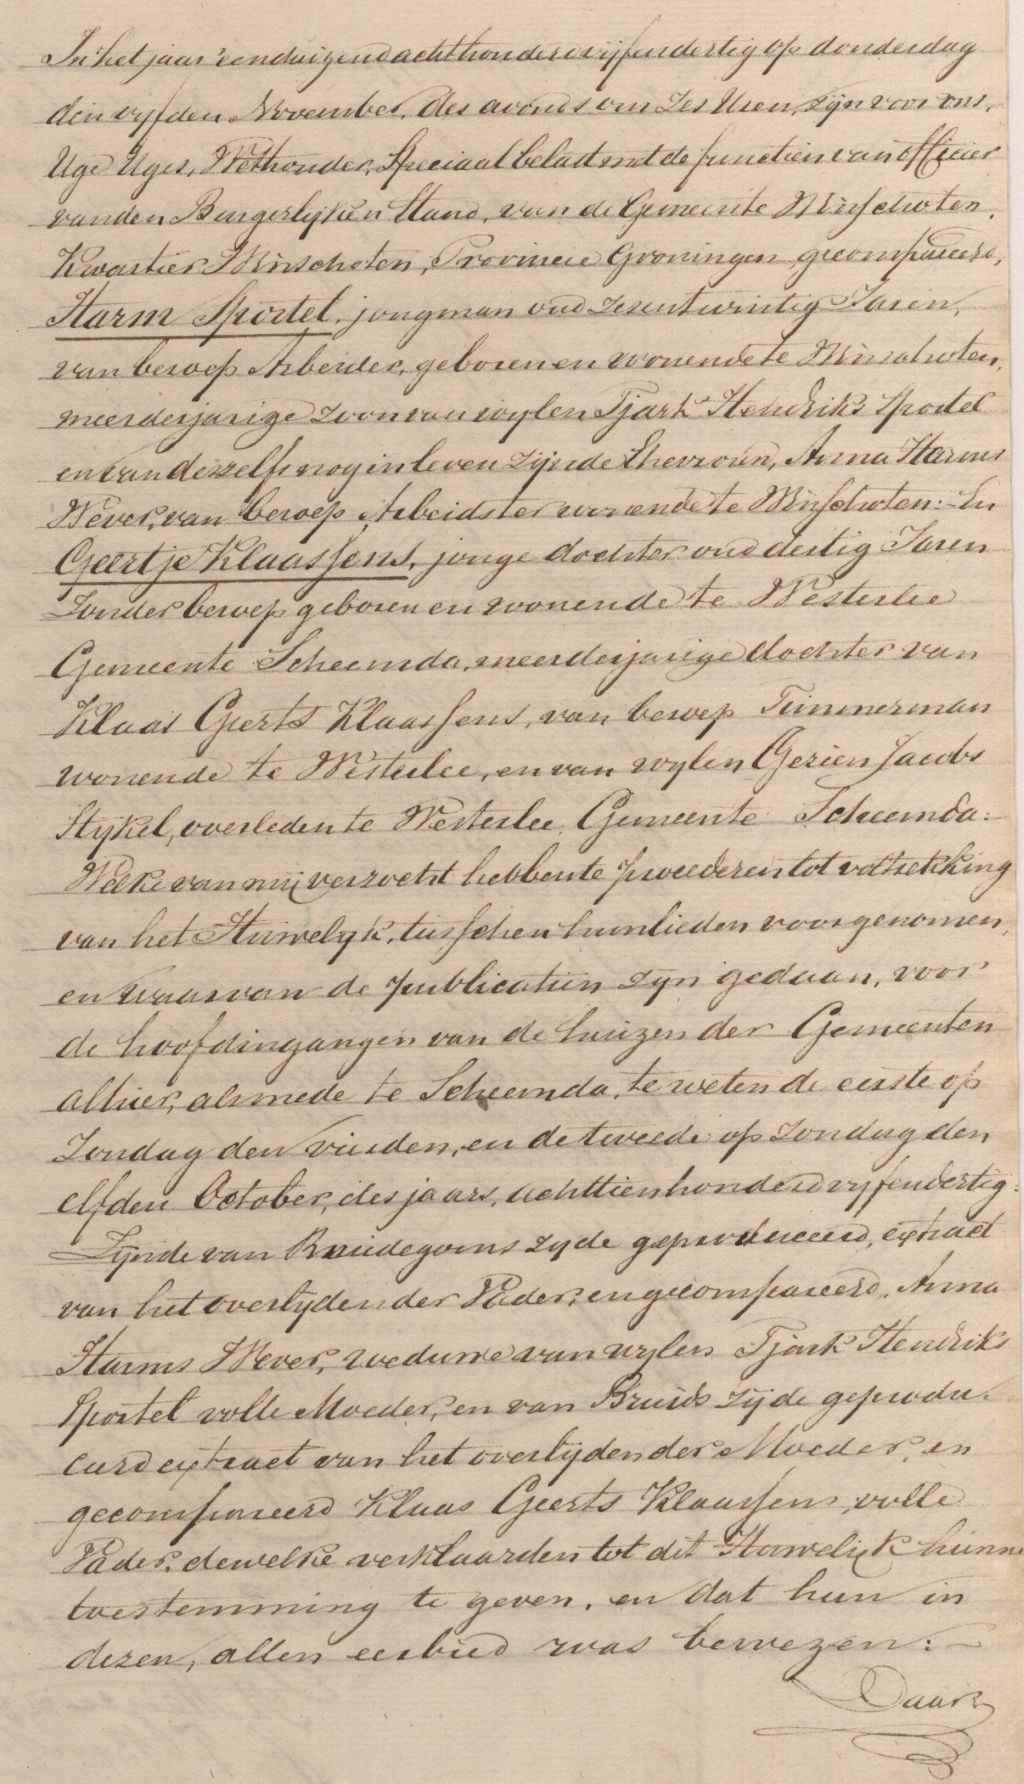 In het jaar eenduizend achthonderd vijfendertig op donderdag
den vyfden November, des avonds om Zes Uren, zijn voor ons,
Uge Uges, Wethouder, Speciaal belast met de functien van officier
van den Burgerlyken Stand, van de Gemeente Winschoten,
Kwartier Winschoten, Provincie Groningen gecompareerd,
Harm Sportel, jongman oud zesentwintig Jaren,
van beroep Arbeider, geboren en wonende te Winschoten,
meerderjarige zoon van wylen Tjark Hendriks Sportel
en van deszelfs nog in leven zijnde Ehevrouw, Anna Harms
Wever, van beroep Arbeidster wonende te Winschoten: En
Geertje Klaassens, jonge dochter oud dertig Jaren
zonder beroep geboren en wonende te Westerlee
Gemeente Scheemda, meerderjarige dochter van
Klaas Geerts Klaassens, van beroep Timmerman
wonende te Westerlee, en van wylen Gezien Jacobs
Stykel, overleden te Westerlee Gemeente Scheemda:
Welke van mij verzocht hebben te proeederen tot voltrekking
van het Huwelyk, tusschen hunlieden voorgenomen,
en waarvan de publicatien zyn gedaan, voor
de hoofdingangen van de huizen der Gemeenten
alhier, alsmede te Scheemda, te weten de eerste op
Zondag den vierden, en de tweede op Zondag den
elfden October, des jaars, achttienhonderd vyfendertig:
Zijnde van Bruidegoms zyde geproduceerd, extract
van het overlijden der Vader, en gecompareerd, Anna
Harms Wever, weduwe van wylen Tjark Hendriks
Sportel volle Moeder, en van Bruids zijde geprodu-
ceerd extract van het overlijden der Moeder, en
gecompareerd Klaas Geerts Klaassens volle
Vader, dewelke verklaarden tot dit Huwelijk hunne
toestemming te geven, en dat hun in
dezen, allen eerbied was bewezen:
Daar